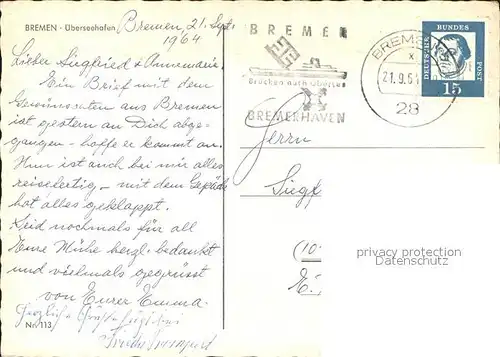 BREMEN - Überseehafen Bremen, 21. Sept.
1964
Lieber Siegfried & Annemarie.
Ein Brief mit dem
aus Bremen
ist gestern an Dich abge-
gangen - hoffe er kommt an.
Nun ist auch bei mir alles
reisefertig - mit dem Gepäck
hat alles geklappt.
Seid nochmals für all
Eure Mühe herzl. bedankt
und vielmals gegrüsst
von Eurer Emma.
Herzliche Grüße
Nr. 113
BREMEN
Brücken nach Übersee
BREMERHAVEN
BREMEN
x
21.9.64
28
DEUTSCHE BUNDESPOST
15
Herrn
Siegf
(10
privacy protection
Datenschutz